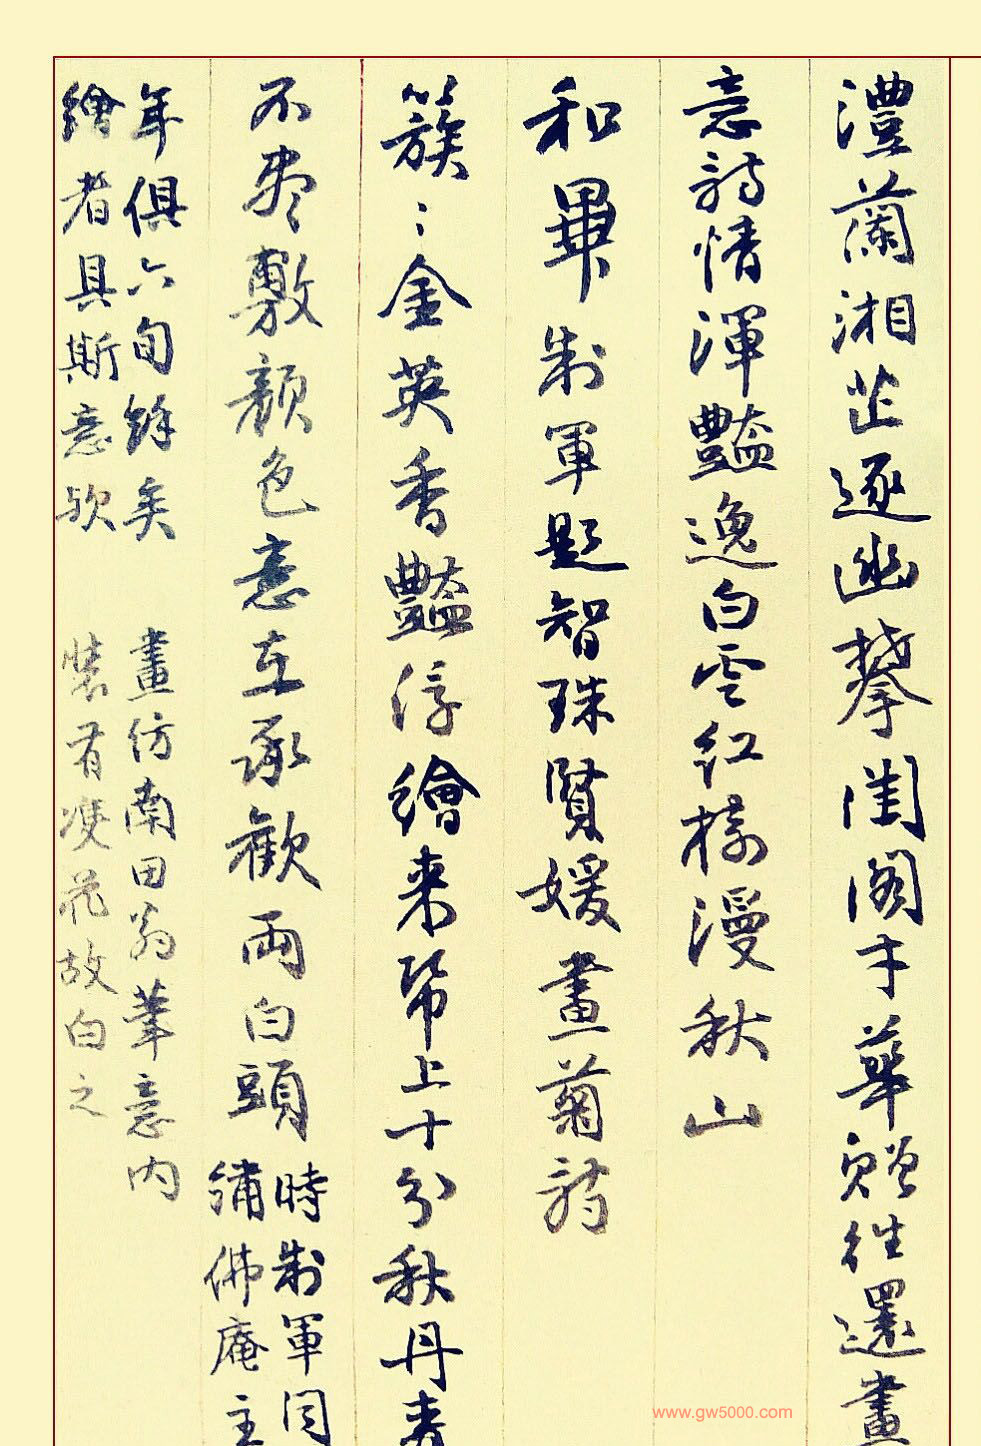 澧蘭湘芷逐幽攀閨閣才華贈往還畫
意詩情渾豔逸白雲紅樹漫秋山
和畢制軍題智珠賢媛畫菊詩
簇〻金英香豔浮繪来帋上十分秋丹青
不盡敷顏色意在承歡兩白頭
時制軍同
繡佛庵主
年俱六旬餘矣
繪者具斯意歟
畫仿南田翁筆意内
裝有瘦花故白之
www.gw5000.com